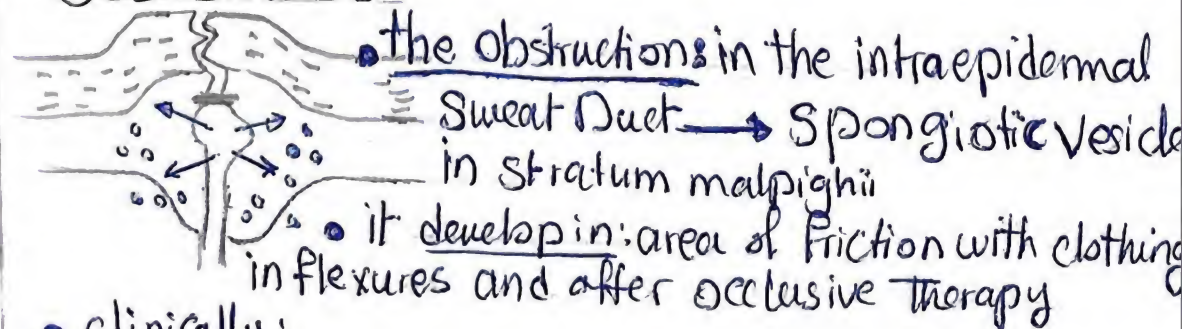 • the obstruction: in the intraepidermal
Sweat Duct → Spongiotic vesicle
in stratum malpighii
• it develop in: area of friction with clothing
in flexures and after occlusive therapy
• clinically: